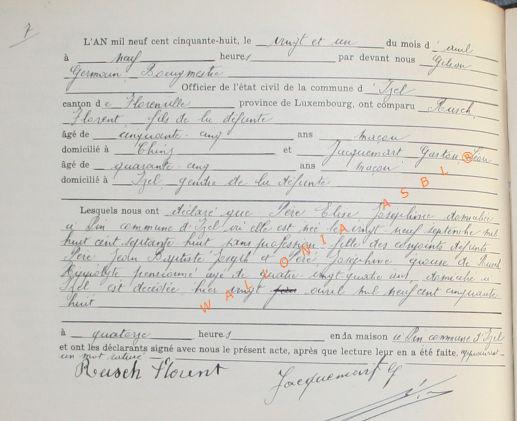 7
L'AN mil neuf cent cinquante-huit, le vingt et un du mois d'avril
à neuf heures par devant nous Gédéon
Germain Bourgmestre
Officier de l'état civil de la commune d'Izel
canton de Florenville province de Luxembourg, ont comparu Rusch
Florent, fils de la défunte
âgé de cinquante-cinq ans maçon
domicilié à Chiny et Jacquemart Gaston, Léon
âgé de quarante-cinq ans maçon
domicilié à Izel gendre de la défunte
Lesquels nous ont déclaré que Père Elise Joséphine domiciliée
à Pin commune d'Izel où elle est née le vingt neuf septembre mil
huit cent septante huit sans profession, fille des conjoints défunts
Père Jean Baptiste Joseph et Joséphine épouse de
Hippolyte pensionné âgé de quatre vingt quatre ans, domicilié à
Izel est décédée hier vingt avril mil neuf cent cinquante
huit
à quatorze heures en la maison à Pin commune d'Izel
et ont les déclarants signé avec nous le présent acte, après que lecture leur en a été faite, approuvant
un mot raturé
Rusch Florent
Jacquemart G
WALLONIA ASBL ®